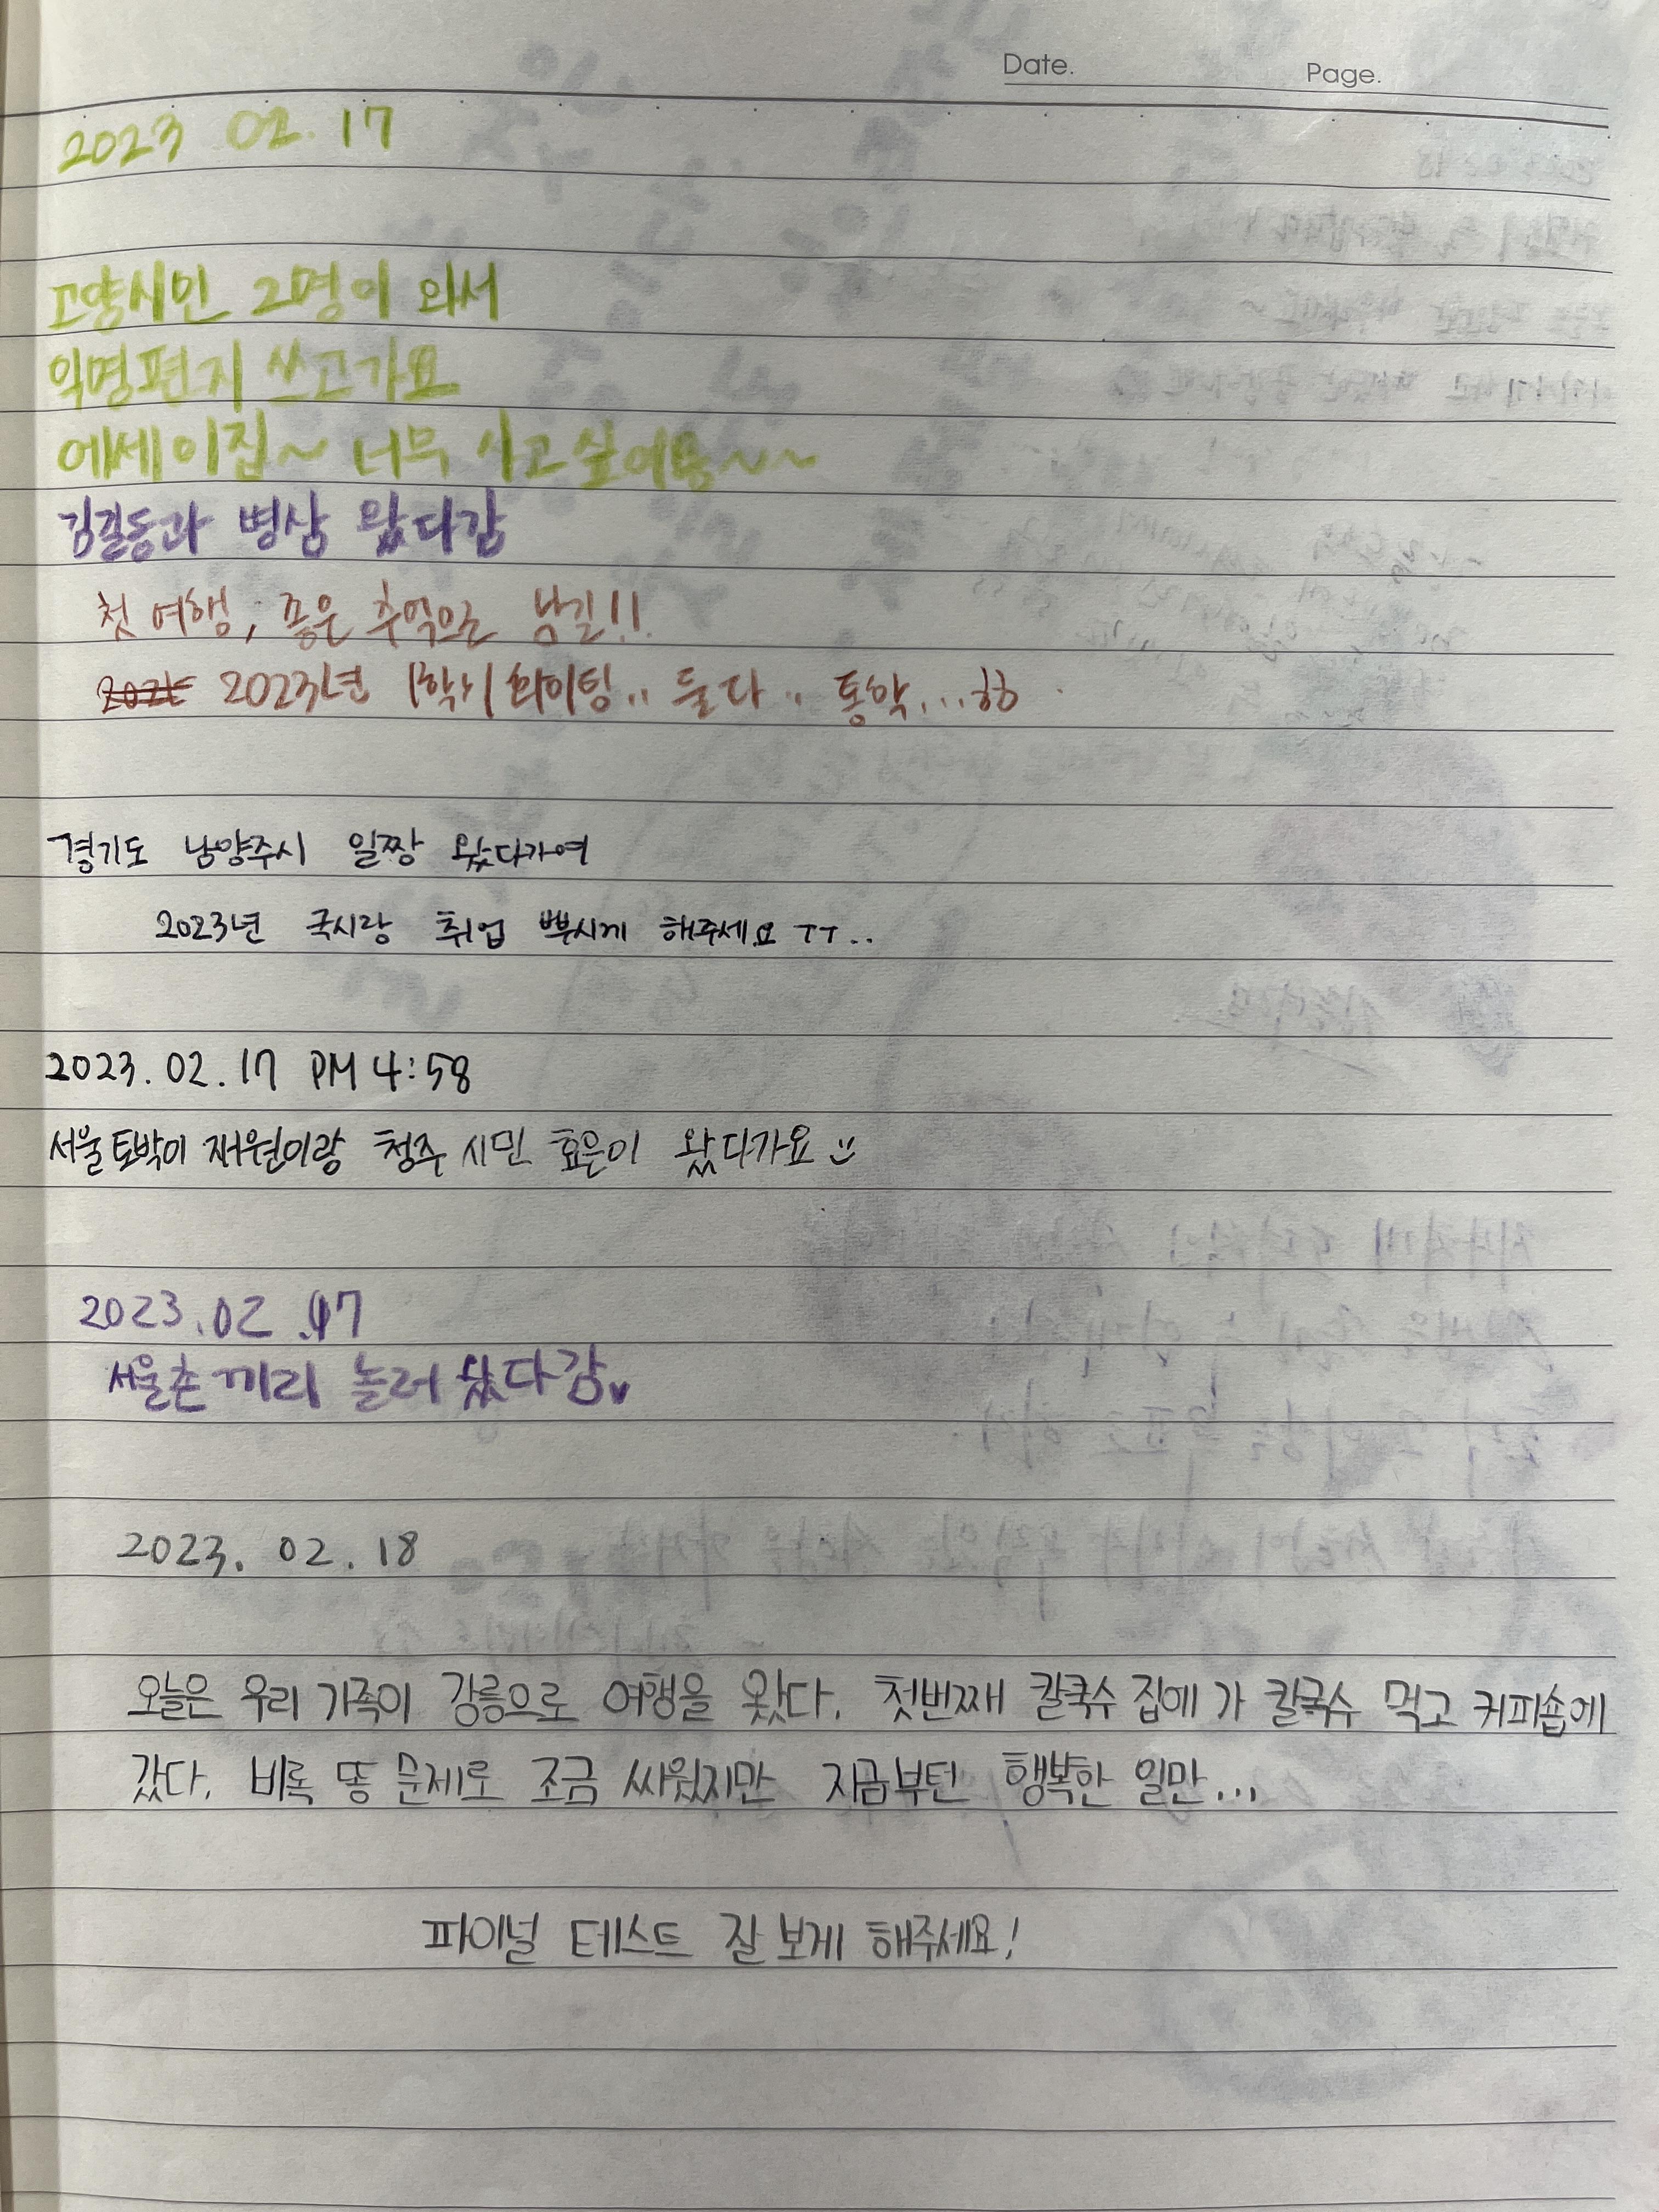 Date.
Page.
2023 02. 17
고양시민 2명이 와서
익명편지 쓰고가요
에세이집~ 너무 사고싶어용~~
김길동과 병상 왔다감
첫 여행, 좋은 추억으로 남길!!
2023년 1학기 화이팅.. 둘다.. 통학...ㅎㅎ
경기도 남양주시 일짱 왔다가여
2023년 국시랑 취업 뿌시게 해주세요 ㅜㅜ..
2023. 02. 17 PM 4:58
서울토박이 재원이랑 청주 시민 효은이 왔다가요
2023. 02. 17
서울촌끼리 놀러왔다감
2023. 02. 18
오늘은 우리 가족이 강릉으로 여행을 왔다. 첫번째 칼국수 집에 가 칼국수 먹고 커피숍에
갔다. 비록 똥 문제로 조금 싸웠지만 지금부턴 행복한 일만...
파이널 테스트 잘 보게 해주세요!